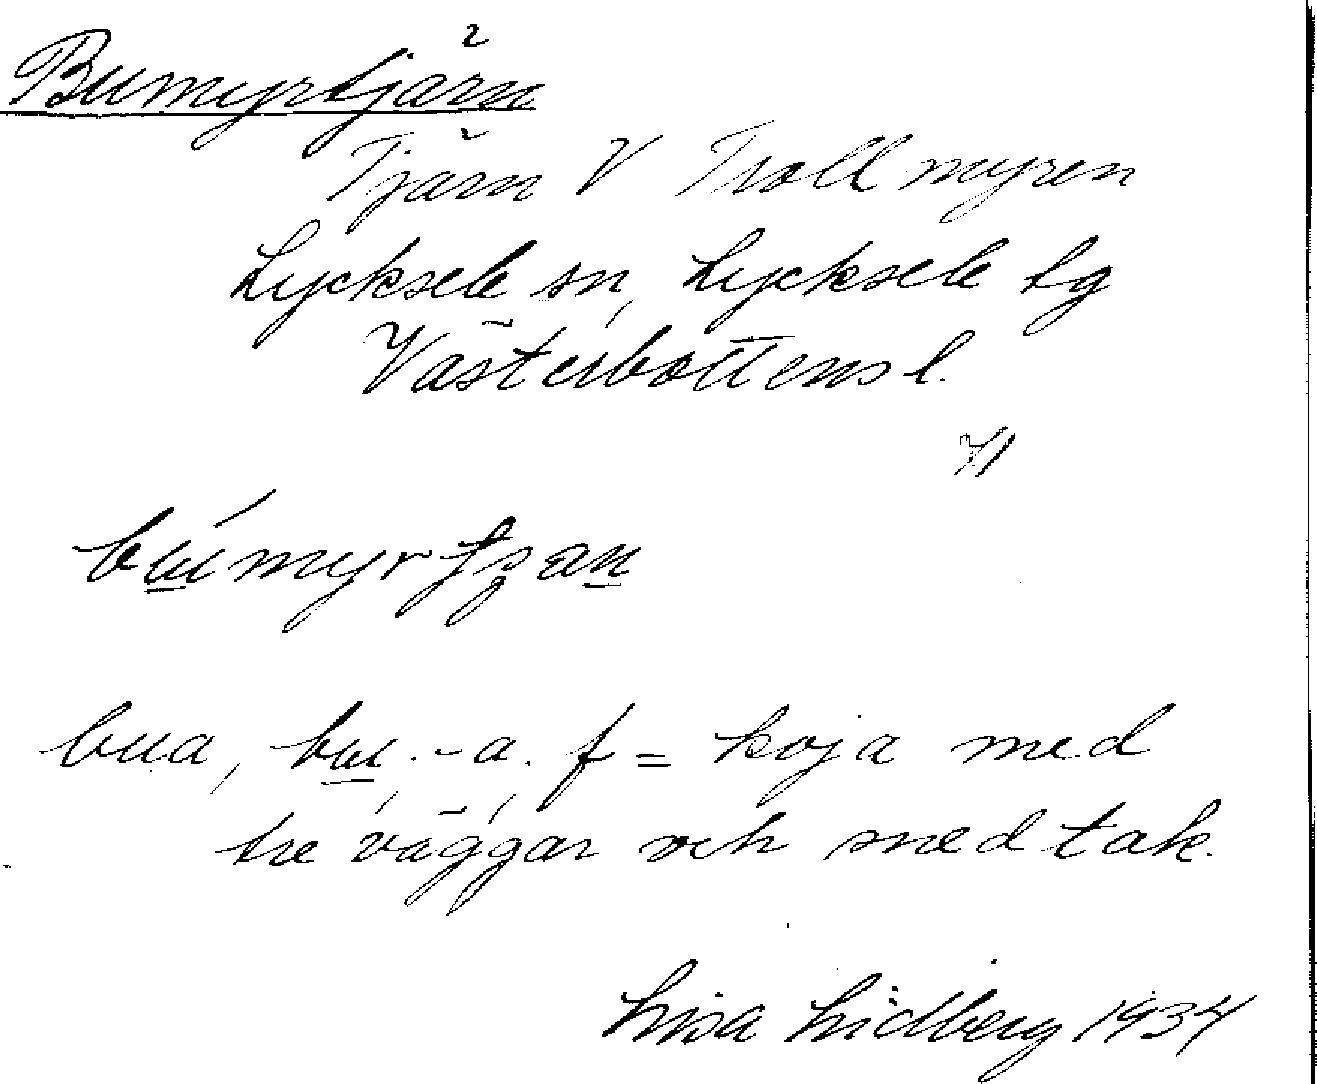 Bumyrtjärn
Tjärn V Trollmyren
Lycksele sn, Lycksele lg
Västerbottens l.
bua, bɯ.-a. f = koja med
tre väggar och med tak.
Lisa Lidberg 1934